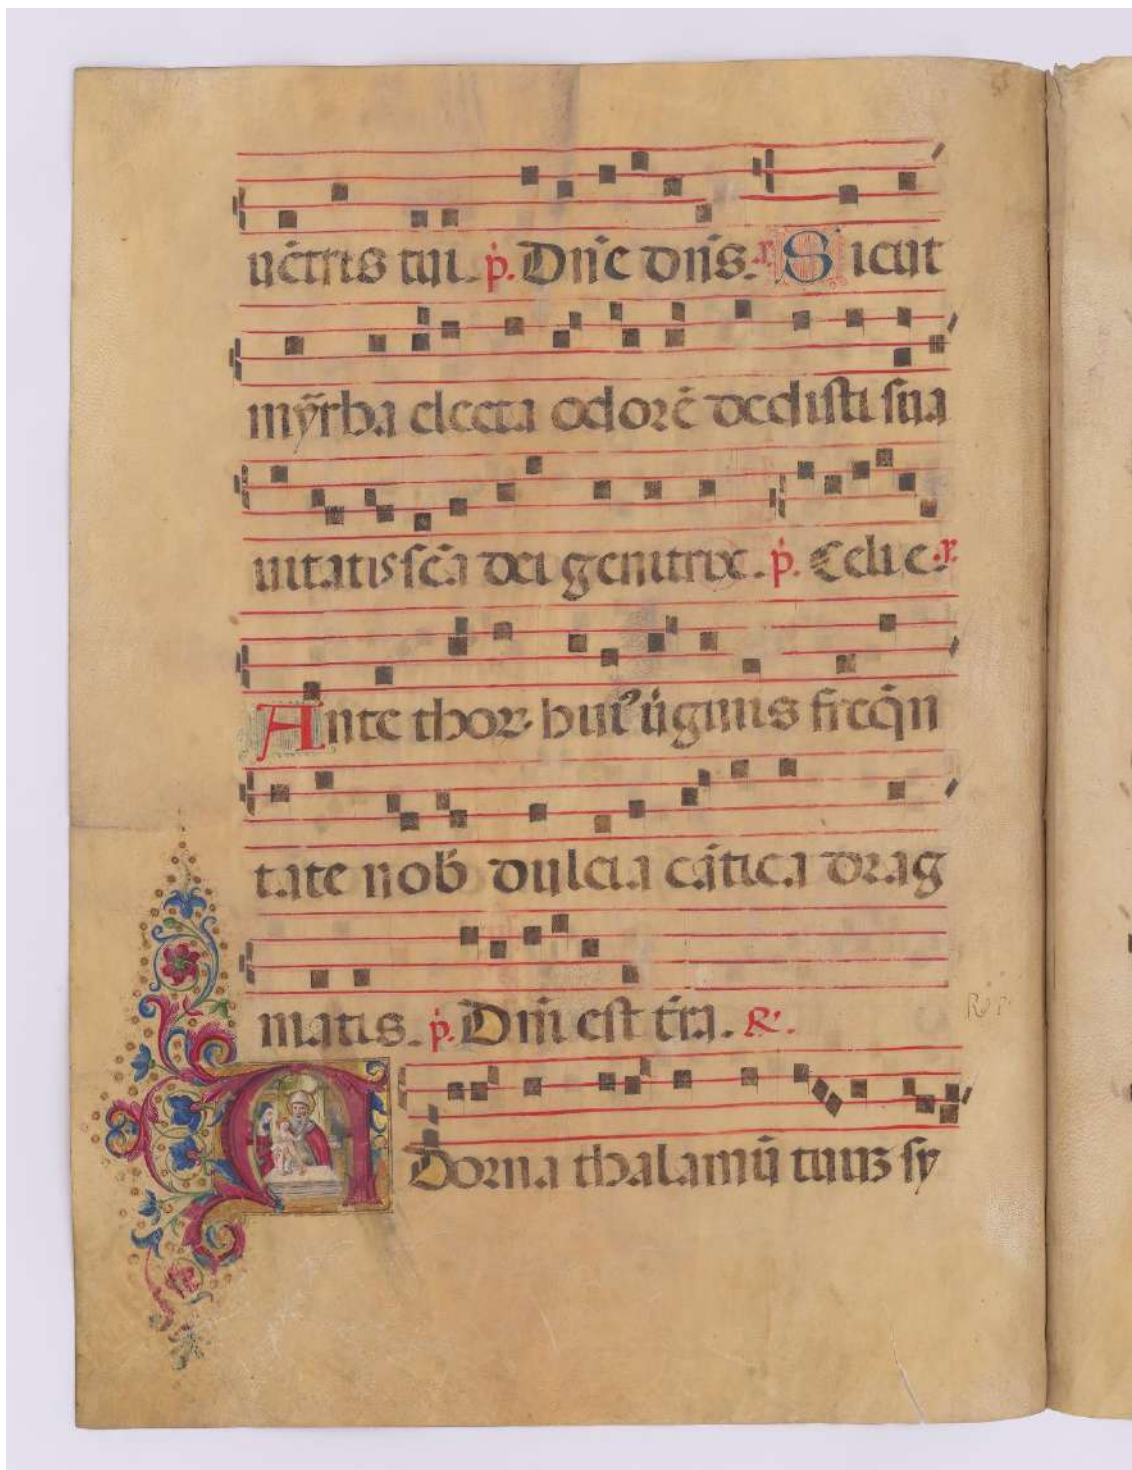 uẽtris tui. p̄. Dñe dñs. r̄. Sicut
mỹrha electa odorẽ dedisti sua
uitatis sc̃a dei genitrix. p̄. Celi e. r̄.
Ante thoꝝ huiꝰ ũginis freq̃n
tate nob̃ dulcia cãtica drag
matis. p̄. Dñi est tr̃a. R̃.
Adorna thalamũ tuuꝫ sy